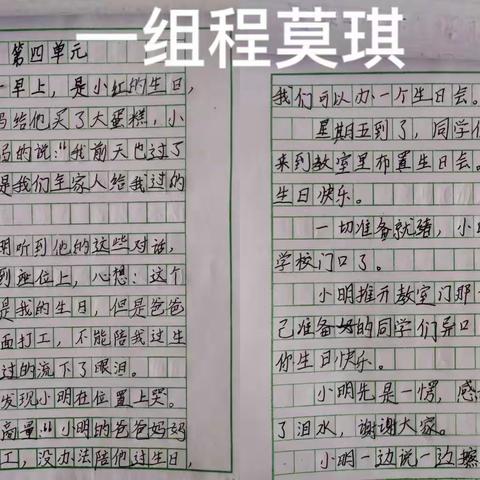 一组程莫琪
第四单元
一早上，是小红的生日，
妈给他买了大蛋糕，小
的说："我前天也过了
是我们全家人给我过的
明听到他的这些对话，
到座位上，心想：这个
是我的生日，但是爸爸
面打工，不能陪我过生
过的流下了眼泪。
发现小明在位置上哭。
商量："小明的爸爸妈妈
工，没办法陪他过生日，
我们可以办一个生日会。
星期五到了，同学们
来到教室里布置生日会。
生日快乐。
一切准备就绪，小
学校门口了。
小明推开教室门那一
己准备好的同学们异口
你生日快乐。
小明先是一愣，感
了泪水，谢谢大家。
小明一边说一边擦